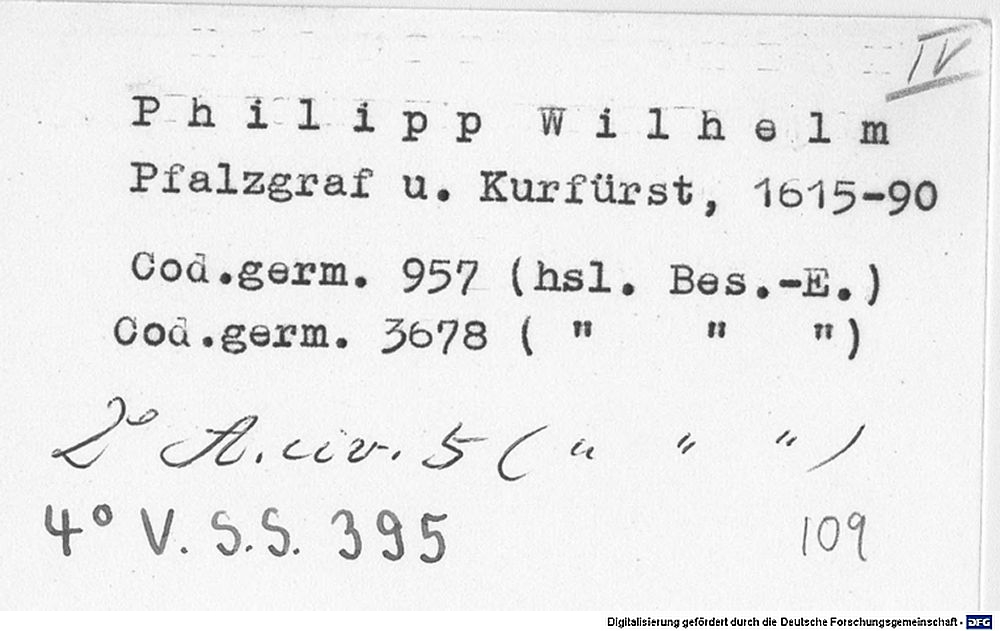 IV
Philipp Wilhelm
Pfalzgraf u. Kurfürst, 1615-90
Cod.germ. 957 (hsl. Bes.-E.)
Cod.germ. 3678 ( " " ")
2° A. civ. 5 ( " " " )
4° V. S.S. 395
109
Digitalisierung gefördert durch die Deutsche Forschungsgemeinschaft - DFG